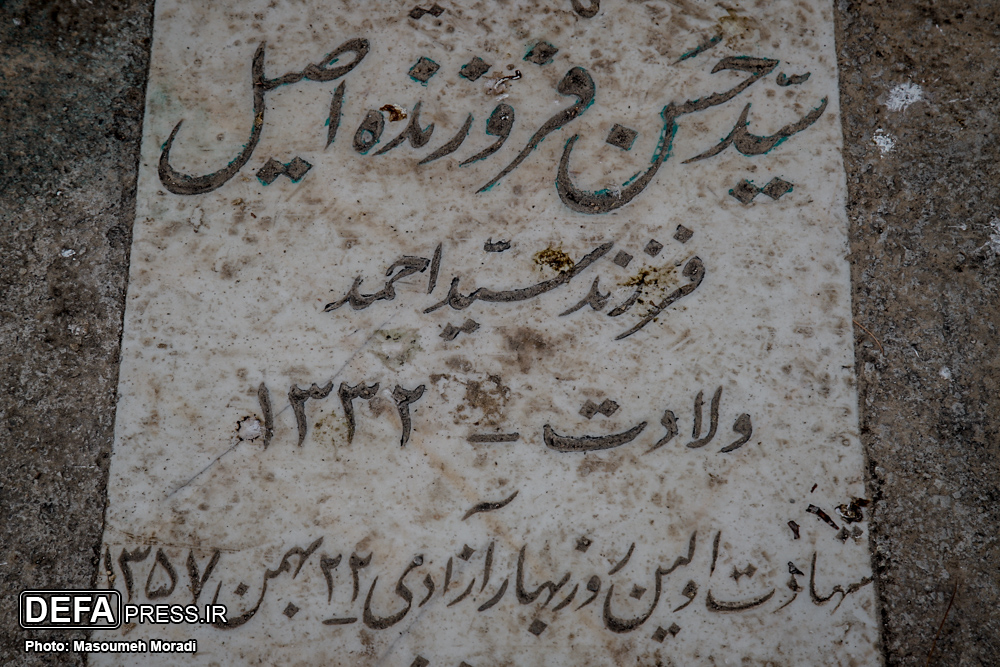 سیّد حسَن فروزنده اصیل
فرزند سیّد احمد
ولادت - ۱۳۳۲
شهادت اولین رُوز بهار آزادمی ۲۲ بهمن ۱۳۵۷
DEFAPRESS.IR
Photo: Masoumeh Moradi